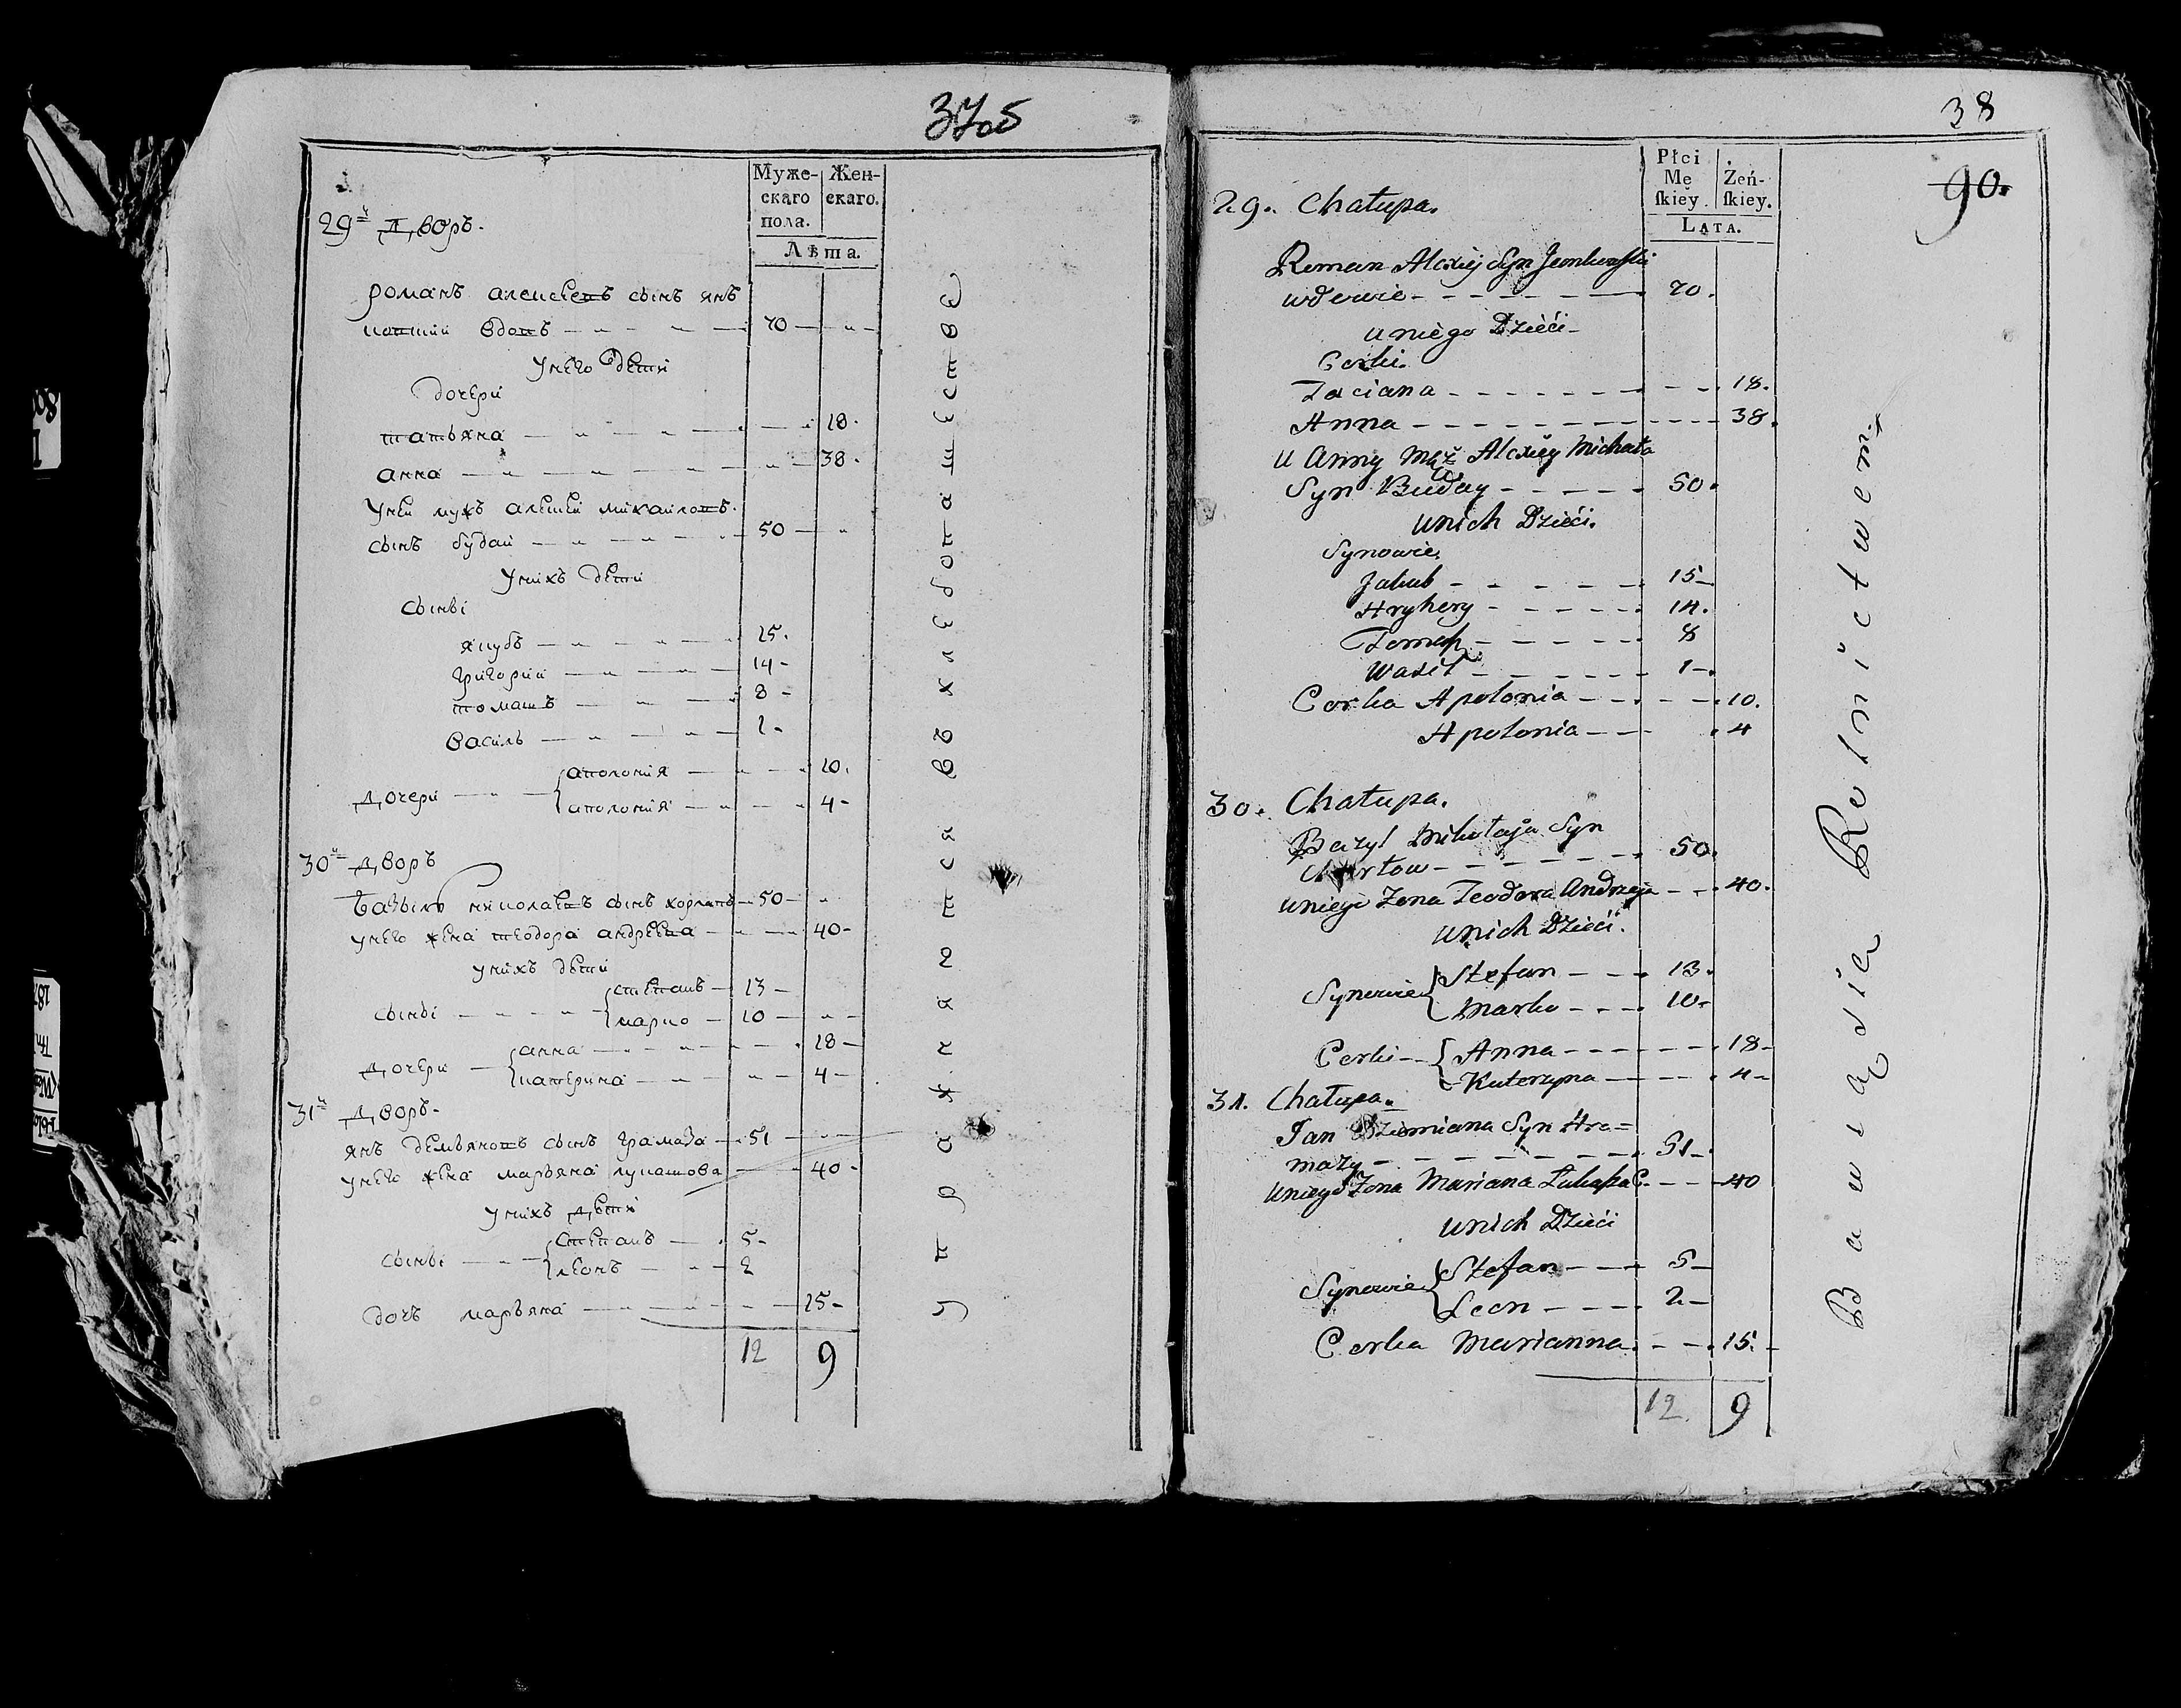 37об
Муже-
скаго
пола.
Жен-
скаго.
Лѣта.
29й Дворъ.
романъ алексеевъ сынъ ян
ковский вдовъ 70
у него дети
дочери
татьяна 18
анна 38
у ней мужъ алексей михайловъ
сынъ будай 50
у нихъ дети
сыны
якубъ 15
григорий 14
томашъ 8
василь 1
дочери
аполония 10
аполония 4
30й дворъ
базыль николаевъ сынъ 50
у него жена теодора андреева 40
у нихъ дети
сыны
степанъ 13
марко 10
дочери
анна 18
катерина 4
31й дворъ
янъ демьяновъ сынъ грамаза 51
у него жена марьяна лукашова 40
у нихъ дети
сыны
степанъ 5
леонъ 2
дочь марьяна 15
12 9
упражняется въ хлебопашестве
38
90.
Płci
Mę
ſkiey.
Żeń-
ſkiey.
LATA.
29. Chałupa.
Roman Alexiej Syn Jankowski
wdowie 70.
u niego Dzieci
Corki.
Taciana 18.
Anna 38.
u Anny Mąż Alexiey Michała
Syn Buday 50.
u nich Dzieci.
Synowie.
Jakub 15
Hryhory 14.
Tomasz 8
Wasil 1
Corka Apolonia 10.
Apolonia 4
30. Chałupa.
Bazyl Mikołaja Syn
50.
u niego Żona Teodora Andrzeja 40.
u nich Dzieci.
Synowie
Stefan 13.
Marko 10
Corki
Anna 18
Katerzyna 4
31. Chałupa.
Jan Dziemiana Syn Hra=
mazy 51
u niego Żona Mariana Łukasza C. 40
u nich Dzieci
Synowie
Stefan 5
Leon 2
Corka Marianna 15.
12. 9
Bawią sią Rolnictwem.